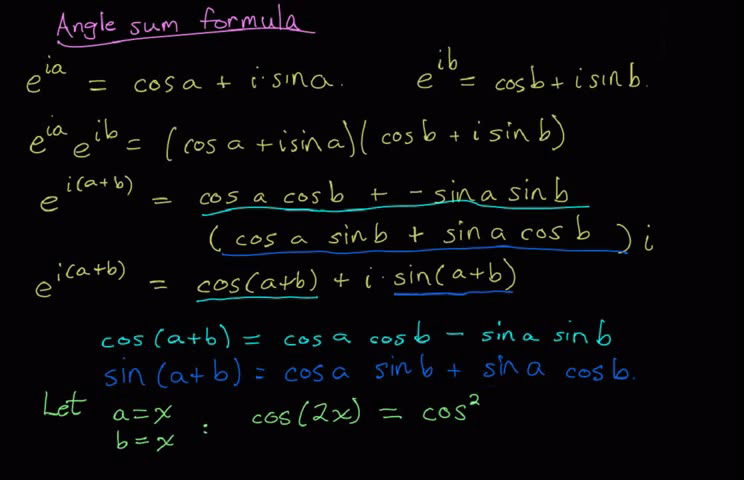 Angle sum formula
e^{ia} = cos a + i · sin a. e^{ib} = cos b + i sin b.
e^{ia} e^{ib} = (cos a + i sin a)(cos b + i sin b)
e^{i(a+b)} = cos a cos b + - sin a sin b
(cos a sin b + sin a cos b) i
e^{i(a+b)} = cos(a+b) + i · sin(a+b)
cos (a+b) = cos a cos b - sin a sin b
sin (a+b) = cos a sin b + sin a cos b.
Let a = x : cos(2x) = cos²
b = x